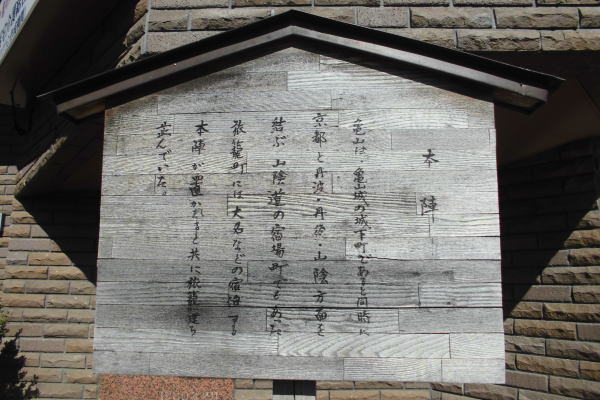 本陣
亀山は、亀山城の城下町であると同時に
京都と丹波・丹後・山陰方面を
結ぶ山陰道の宿場町でもあった
旅籠町には大名などの宿泊する
本陣が置かれると共に旅籠が建ち
並んでいた。